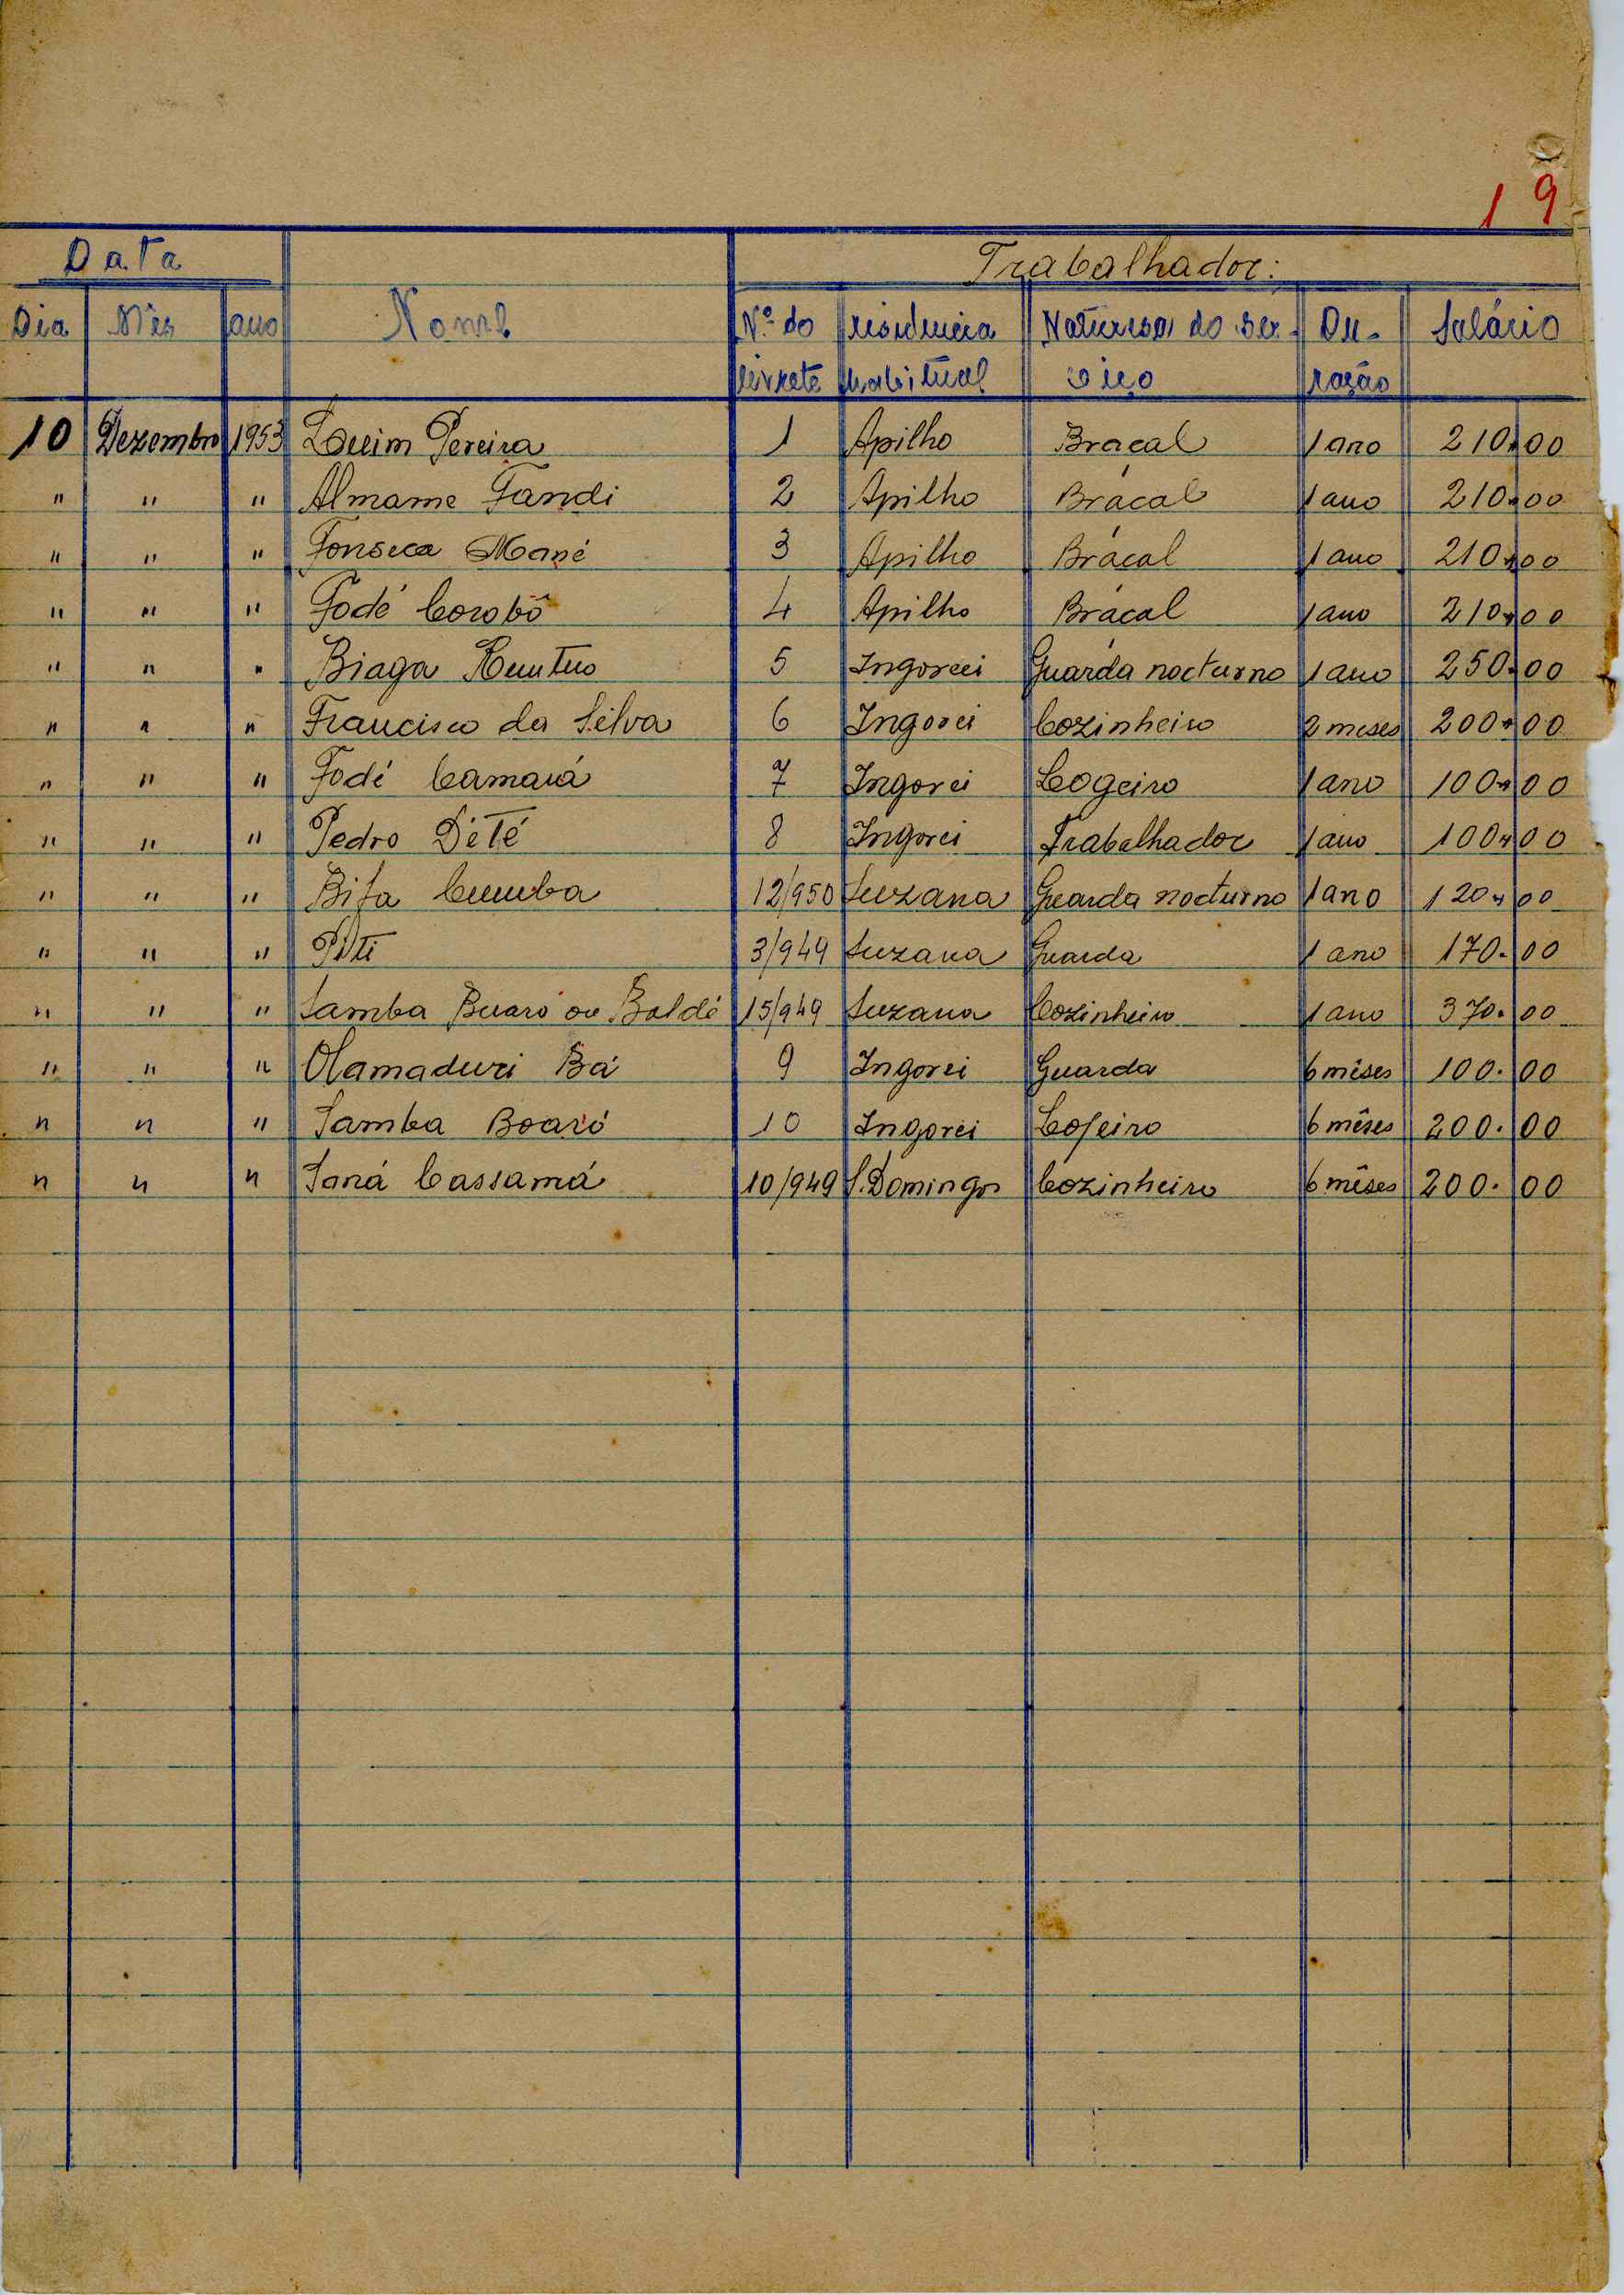 19
Data Trabalhador:
Dia Mês ano Nome Nº do residencia Naturesa do ser- Du- Salário
livrete habitual viço ração
10 Dezembro 1953 Luim Pereira 1 Apilho Braçal 1 ano 210.00
" " " Almame Fandi 2 Apilho Bráçal 1 ano 210.00
" " " Fonseca Mané 3 Apilho Bráçal 1 ano 210.00
" " " Fodé Corobô 4 Apilho Bráçal 1 ano 210.00
" " " Biaga 5 Ingorei Guarda nocturno 1 ano 250.00
" " " Francisco da Silva 6 Ingorei Cozinheiro 2 meses 200.00
" " " Fodé Camará 7 Ingorei 1 ano 100.00
" " " Pedro Dété 8 Ingorei Trabalhador 1 ano 100.00
" " " Bifa Cumba 12/950 Suzana Guarda nocturno 1 ano 120.00
" " " 3/949 Suzana Guarda 1 ano 170.00
" " " Samba Buaró ou Baldé 15/949 Suzana Cozinheiro 1 ano 370.00
" " " Mamaduri Bá 9 Ingorei Guarda 6 mêses 100.00
" " " Samba Boaró 10 Ingorei 6 mêses 200.00
" " " Saná Cassamá 10/949 S. Domingos Cozinheiro 6 mêses 200.00